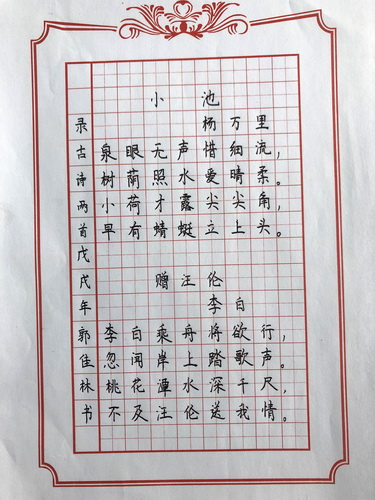 小池
杨万里
泉眼无声惜细流，
树荫照水爱晴柔。
小荷才露尖尖角，
早有蜻蜓立上头。
赠汪伦
李白
李白乘舟将欲行，
忽闻岸上踏歌声。
桃花潭水深千尺，
不及汪伦送我情。
录古诗两首戊戌年郭佳林书